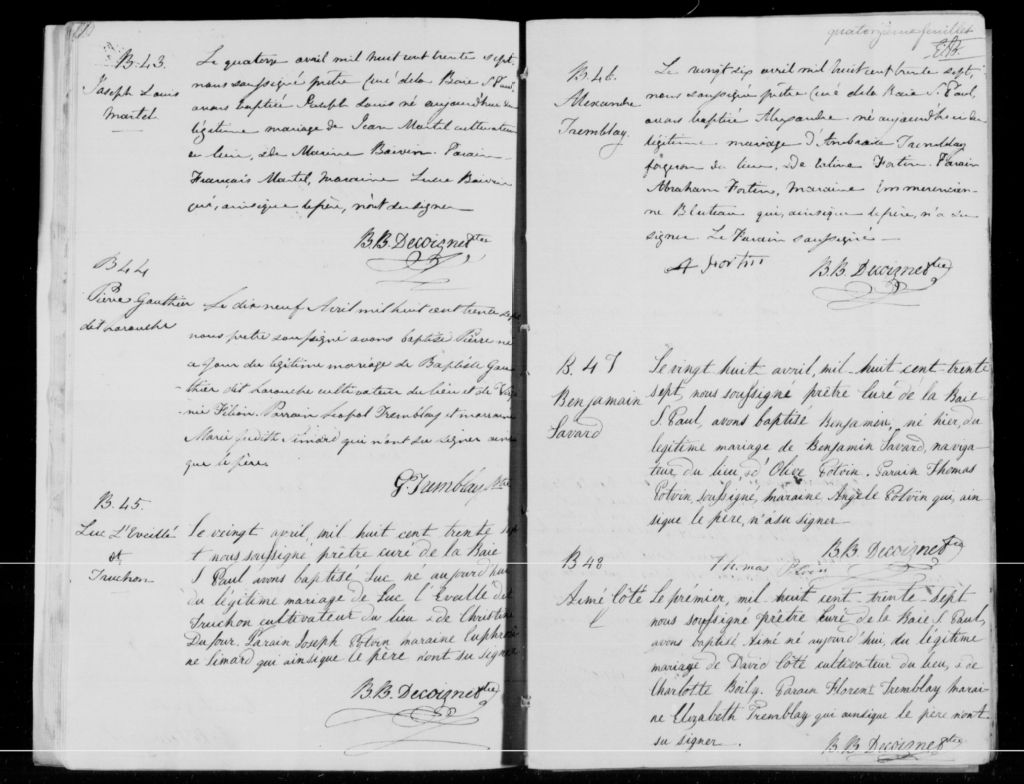 B. 43.
Joseph Louis
Martel
Le quatorze avril mil huit cent trente sept,
nous soussigné prêtre Curé de la Baie S. Paul,
avons baptisé Joseph Louis né aujourd'hui du
légitime mariage de Jean Martel cultivateur
de lieu, & de Boivin. Parain
François Martel, maraine Lucie Boivin
qui, ainsi que le père, n'ont su signer
B. B. Decoigne Ptre
B 44
Pierre Gauthier
dit Larouche
Le dix neuf Avril mil huit cent trente sept
nous prêtre soussigné avons baptisé Pierre né
du légitime mariage de Baptiste Gau-
thier dit Larouche cultivateur du lieu et de
Filion. Parrain Tremblay et marraine
Marie Judith Simard qui n'ont su signer ainsi
que le père.
G. Tremblay Ptre
B. 45.
Luc L'Eveillé
et
Truchon
Le vingt avril, mil huit cent trente sep
t nous soussigné prêtre curé de la Baie
S Paul avons baptisé Luc né aujourd'hui
du légitime mariage de Luc l'Eveillé dit
Truchon cultivateur du lieu & de Christine
Dufour. Parain Joseph Potvin maraine Euphrosi
ne Simard qui ainsi que le père n'ont su signer
B. B. Decoigne Ptre
quatorzième feuillet
B. 46.
Alexandre
Tremblay.
Le vingt six avril mil huit cent trente sept,
nous soussigné prêtre Curé de la Baie S. Paul,
avons baptisé Alexandre né aujourd'hui du
légitime mariage d'Ambroise Tremblay
forgeron du lieu, & de Fortin. Parain
Abraham Fortin, maraine Emmerencien-
ne Bluteau qui, ainsi que le père, n'a su
signer. Le Parain soussigné
A Fortin
B. B. Decoigne Ptre
B. 47
Benjamain
Savard
Le vingt huit avril, mil huit cent trente
sept, nous soussigné prêtre curé de la Baie
S. Paul, avons baptisé Benjamin, né hier, du
légitime mariage de Benjamin Savard, naviga-
teur, du lieu, & d'Olive Potvin. Parain Thomas
Potvin soussigné, maraine Angèle Potvin qui, ain
si que le père, n'a su signer
B. B. Decoigne Ptre
Thomas
B 48
Aimé Côté
Le premier, mil huit cent trente sept
nous soussigné prêtre curé de la Baie S. Paul,
avons baptisé Aimé né aujourd'hui, du légitime
mariage de David Côté cultivateur du lieu, & de
Charlotte Boily. Parain Florent Tremblay marai-
ne Elizabeth Tremblay qui ainsi que le père n'ont
su signer.
B. B. Decoigne Ptre